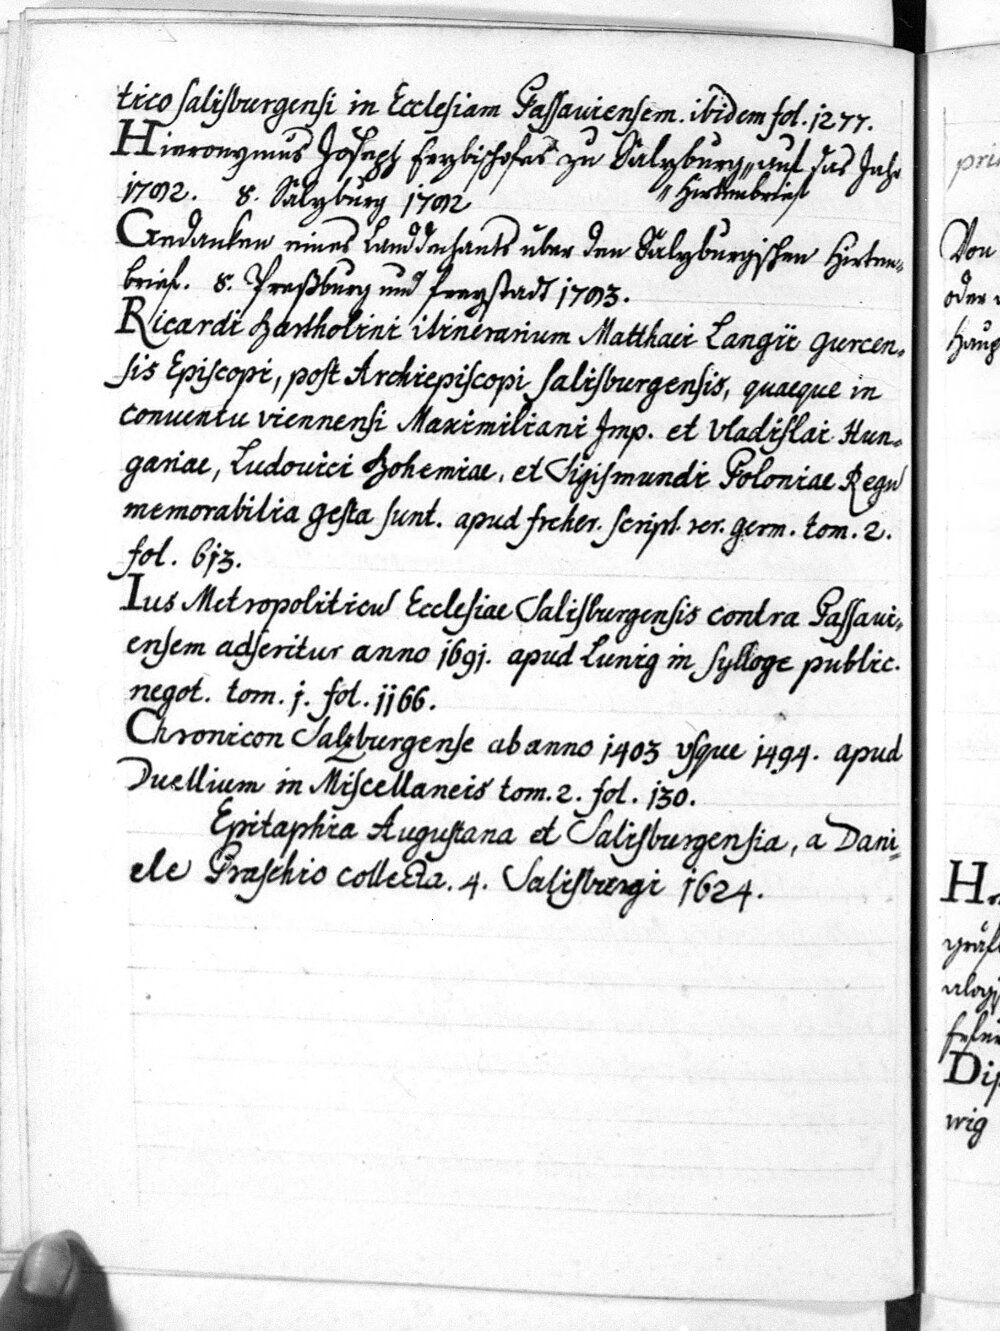 trico Salisburgensi in Ecclesiam Passauiensem. ibidem fol. 1277.
Hieronymus Joseph Erzbischofes zu Salzburg „ auf das Jahr
1782. 8. Salzburg 1782 „ Hirtenbrief
Gedanken eines Landdechants über den Salzburgischen Hirten-
brief. 8. Preßburg und Freystadt 1783.
Ricardi Bartholini itinerarium Matthaei Langii gurcen-
sis Episcopi, post Archiepiscopi Salisburgensis, quaeque in
conuentu viennensi Maximiliani Imp. et Vladislai Hun-
gariae, Ludouici Bohemiae, et Sigismundi Poloniae Regū
memorabilia gesta sunt. apud freher. script. rer. germ. tom. 2.
fol. 613.
Ius Metropoliticū Ecclesiae Salisburgensis contra Passaui-
ensem adseritur anno 1691. apud Lunig in sylloge public.
negot. tom. 1. fol. 1166.
Chronicon Salzburgense ab anno 1403 vsque 1494. apud
Duellium in Miscellaneis tom. 2. fol. 130.
Epitaphia Augustana et Salisburgensia, a Dani-
ele Praschio collecta. 4. Salisburgi 1624.
Von
oder
Haup
Dip
wig